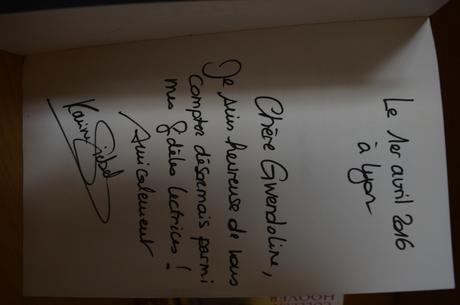 Le 1er avril 2016
à Lyon
Chère Gwendoline,
Je suis heureuse de vous
compter désormais parmi
mes fidèles lectrices !
Amicalement
Karine Giebel
HOOVER